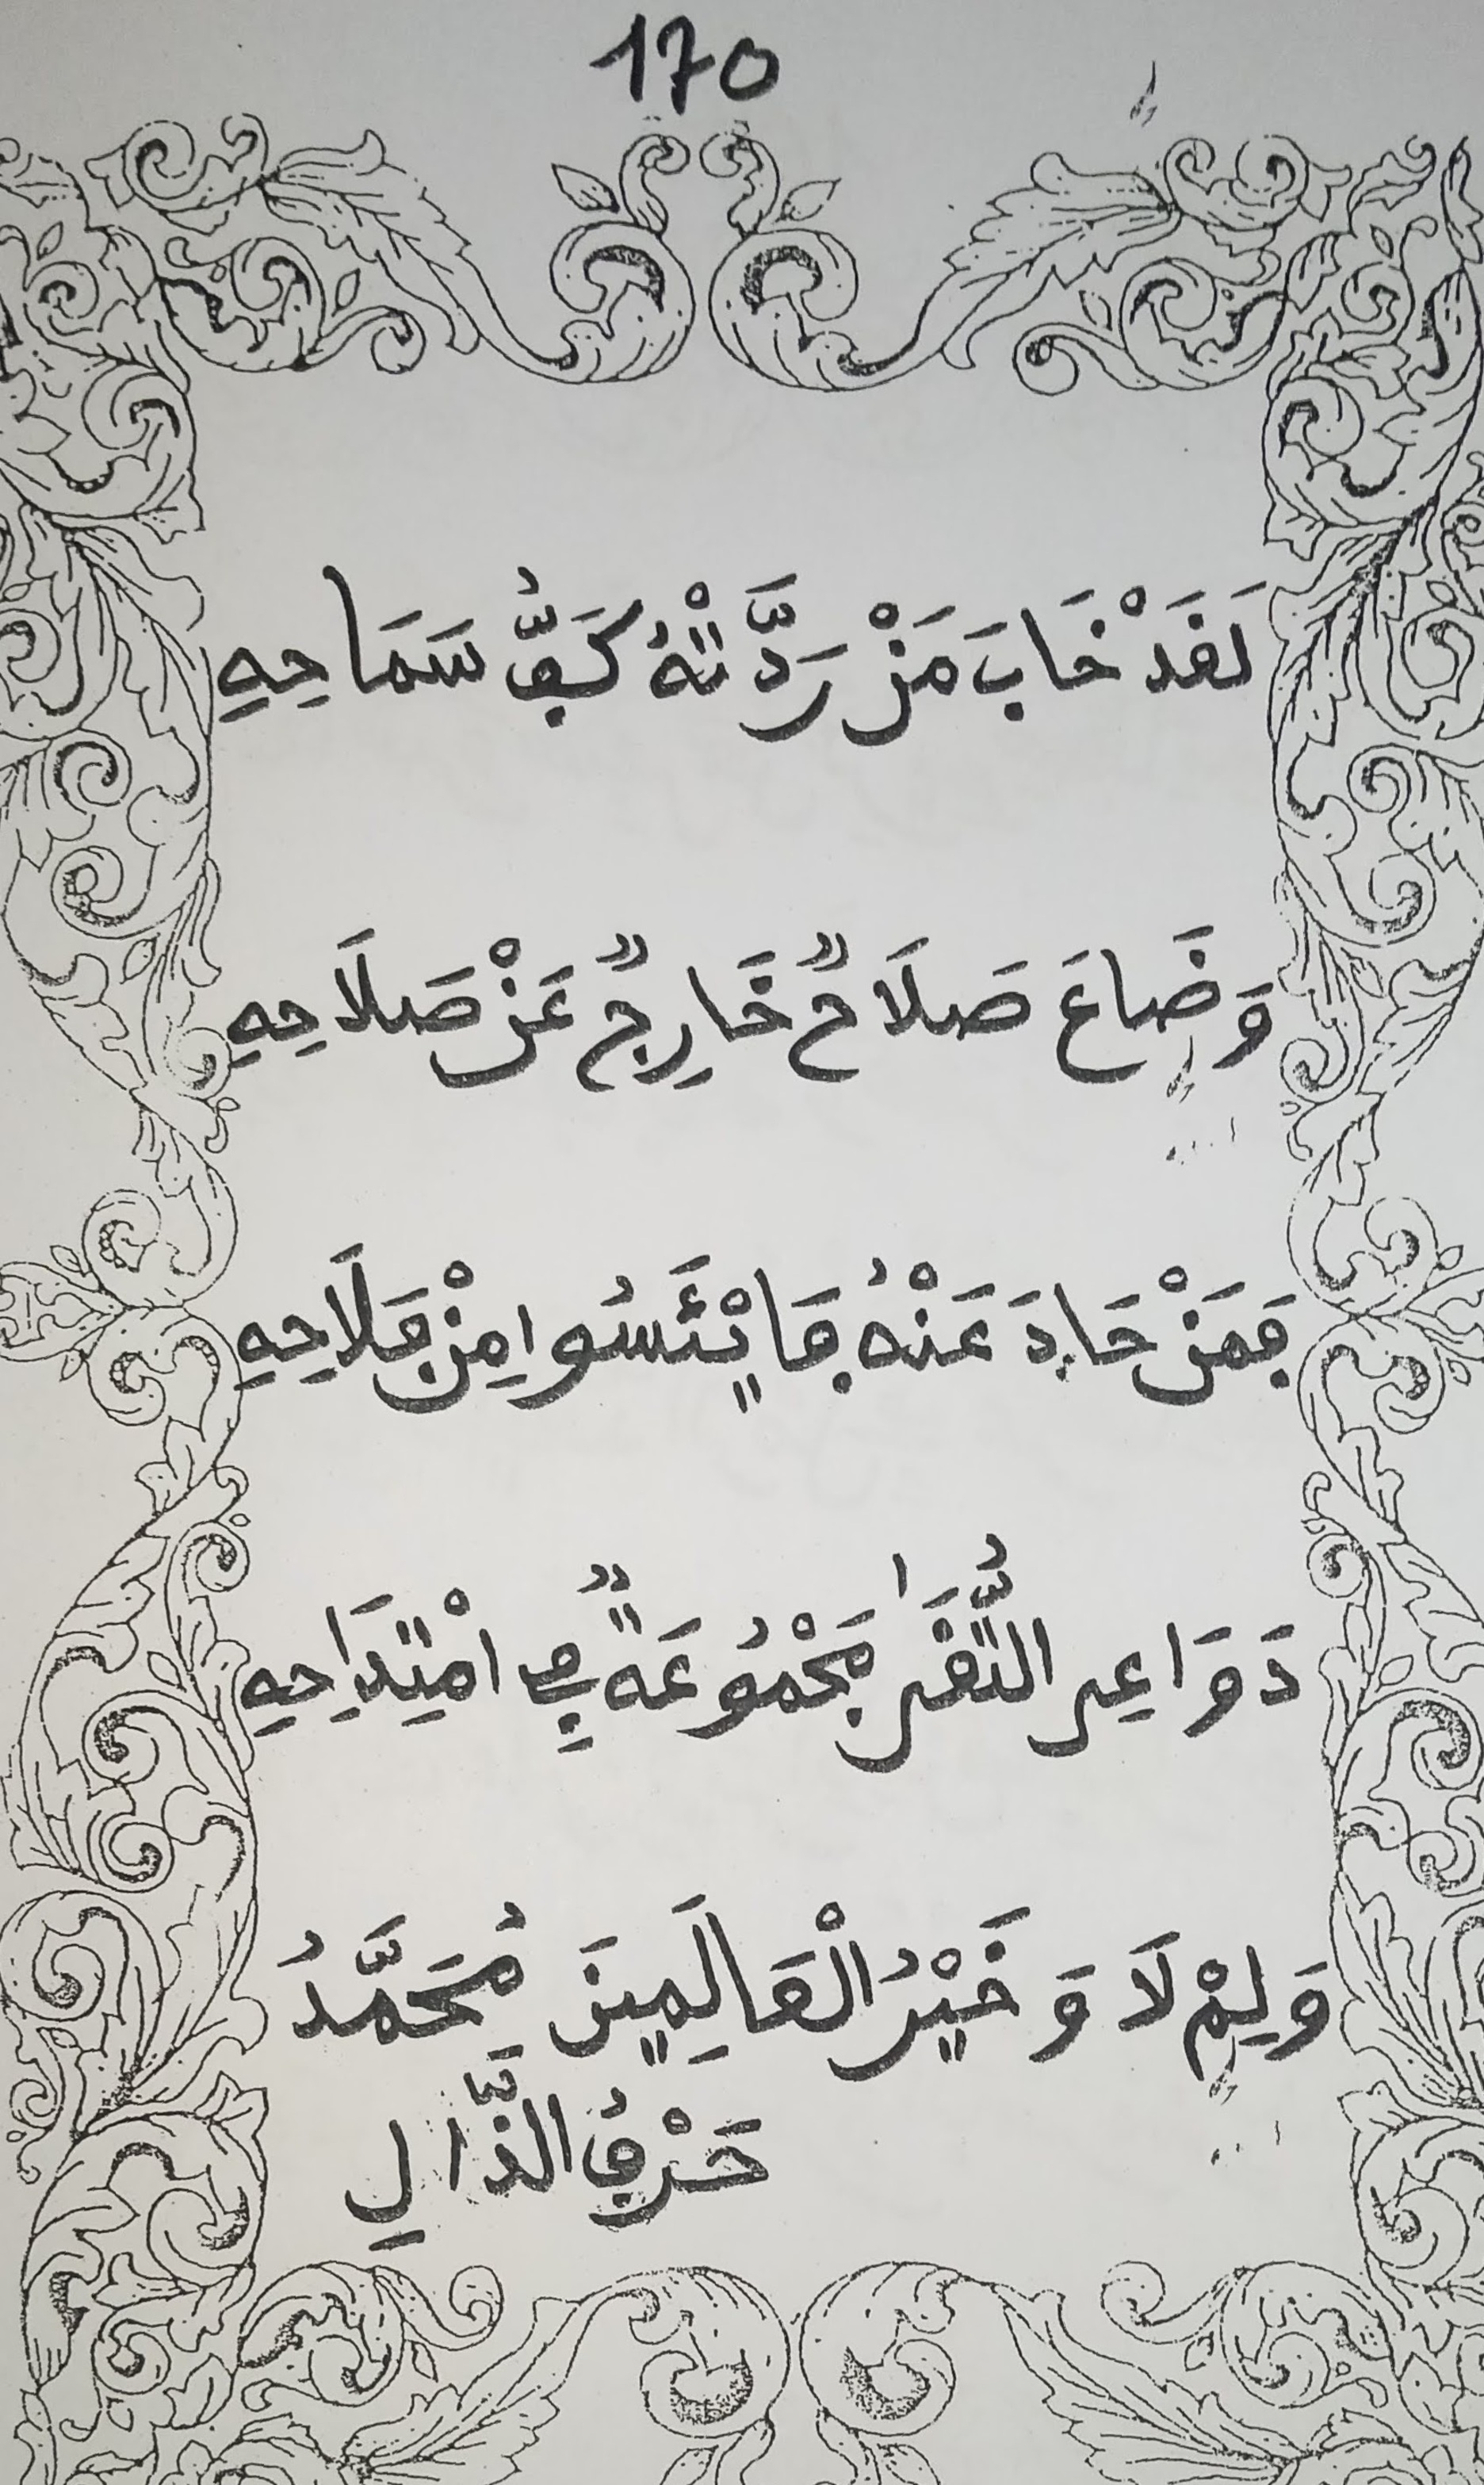 170
لَقَدْ خَابَ مَنْ رَدَّتْهُ كَفُّ سَمَاحِهِ
وَضَاعَ صَلَاحٌ خَارِجٌ عَنْ صَلَاحِهِ
فَمَنْ حَادَ عَنْهُ فَايْئَسُوا مِنْ فَلَاحِهِ
دَوَاعِي التُّقَى مَجْمُوعَةٌ فِي امْتِدَاحِهِ
وَلِمْ لَا وَخَيْرُ الْعَالَمِينَ مُحَمَّدُ
حَرْفُ الذَّالِ